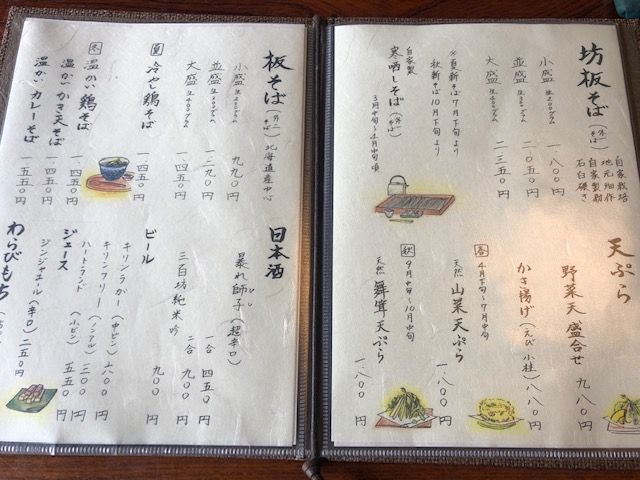 坊板そば（外一そば）
自家栽培
地元畑作
自家製粉
石臼碾き
小盛 生200グラム 一・八〇〇円
並盛 生300グラム 二・一〇〇円
大盛 生400グラム 二・三五〇円
※夏新そば7月下旬より
秋新そば10月下旬より
自家製
寒晒しそば（外一そば）
3月中旬～4月中旬頃
天ぷら
野菜天盛合せ 九八〇円
かき揚げ（えび 小柱）八八〇円
春 4月下旬～7月中旬
天然 山菜天ぷら 一・八〇〇円
秋 9月中旬～10月中旬
天然 舞茸天ぷら 一・八〇〇円
板そば（外二そば）北海道産中心
小盛 生200グラム 九九〇円
並盛 生300グラム 一・二九〇円
大盛 生400グラム 一・四五〇円
夏 冷やし鶏そば 一・四五〇円
冬 温かい鶏そば 一・四五〇円
温かいかき天そば 一・五五〇円
温かいカレーそば 一・五五〇円
日本酒
暴れ獅子（超辛口） 一合 四五〇円
二合 九〇〇円
三百坊純米吟 九〇〇円
ビール
キリンラガー（中ビン） 六〇〇円
キリンフリー（ノンアル） 三〇〇円
ハートランド（小ビン） 五五〇円
ジュース
ジンジャエール（辛口）二五〇円
わらびもち